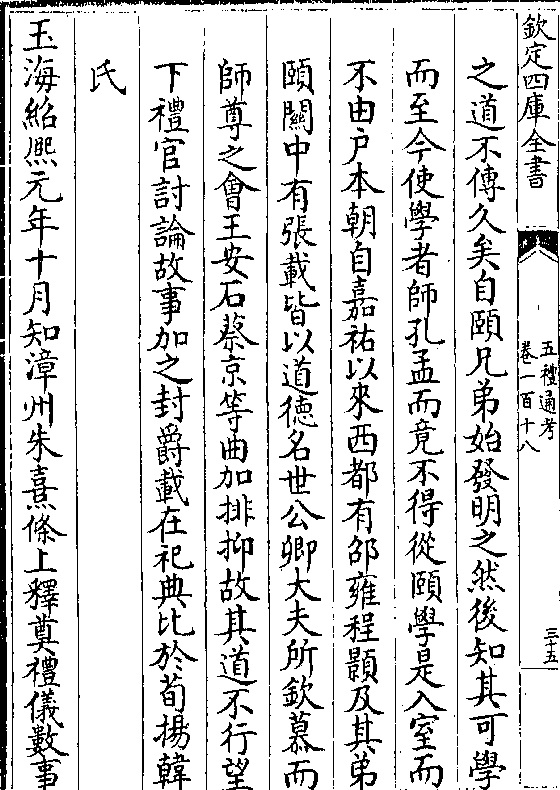 欽定四庫全書
五禮通考
卷一百十八
三十五
之道不傳久矣自頤兄弟始發明之然後知其可學
而至今使學者師孔孟而竟不得從頤學是入室而
不由户本朝自嘉祐以來西都有邵雍程顥及其弟
頤關中有張載皆以道德名世公卿大夫所欽慕而
師尊之會王安石蔡京等曲加排抑故其道不行望
下禮官討論故事加之封爵載在祀典比於荀揚韓
氏
玉海紹熙元年十月知漳州朱熹條上釋奠禮儀數事